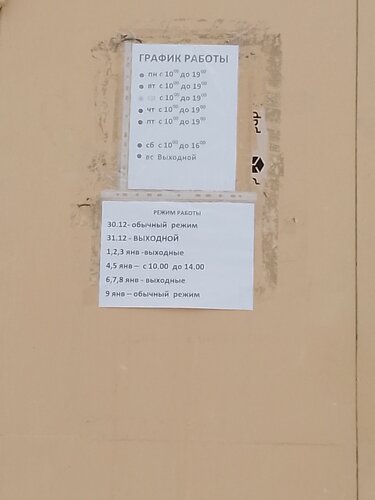 ГРАФИК РАБОТЫ
пн с 10⁰⁰ до 19⁰⁰
вт с 10⁰⁰ до 19⁰⁰
ср с 10⁰⁰ до 19⁰⁰
чт с 10⁰⁰ до 19⁰⁰
пт с 10⁰⁰ до 19⁰⁰
сб с 10⁰⁰ до 16⁰⁰
вс Выходной
РЕЖИМ РАБОТЫ
30.12- обычный режим
31.12 - ВЫХОДНОЙ
1,2,3 янв -выходные
4,5 янв – с 10.00 до 14.00
6,7,8 янв - выходные
9 янв – обычный режим